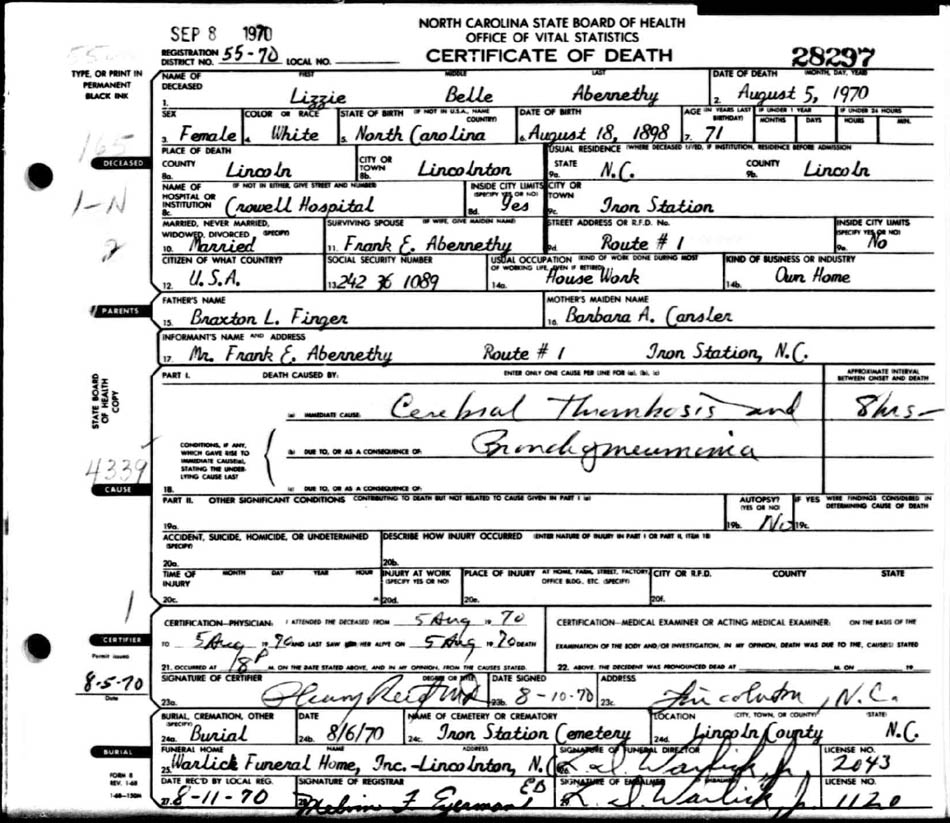 NORTH CAROLINA STATE BOARD OF HEALTH
OFFICE OF VITAL STATISTICS
CERTIFICATE OF DEATH
SEP 8 1970
28297
REGISTRATION DISTRICT NO. 55-70 LOCAL NO.
TYPE, OR PRINT IN PERMANENT BLACK INK
NAME OF DECEASED FIRST MIDDLE LAST DATE OF DEATH (MONTH, DAY, YEAR)
1. Lizzie Belle Abernethy 2. August 5, 1970
SEX COLOR OR RACE STATE OF BIRTH (IF NOT IN U.S.A., NAME COUNTRY) DATE OF BIRTH AGE (IN YEARS LAST BIRTHDAY) IF UNDER 1 YEAR MONTHS DAYS IF UNDER 24 HOURS HOURS MIN.
3. Female 4. White 5. North Carolina 6. August 18, 1898 7. 71
165
DECEASED
1-N
2
PLACE OF DEATH USUAL RESIDENCE (WHERE DECEASED LIVED, IF INSTITUTION, RESIDENCE BEFORE ADMISSION
COUNTY CITY OR TOWN STATE COUNTY
8a. Lincoln 8b. Lincolnton 9a. N.C. 9b. Lincoln
NAME OF HOSPITAL OR INSTITUTION (IF NOT IN EITHER, GIVE STREET AND NUMBER) INSIDE CITY LIMITS (SPECIFY YES OR NO) CITY OR TOWN
8c. Crowell Hospital 8d. Yes 9c. Iron Station
MARRIED, NEVER MARRIED, WIDOWED, DIVORCED (SPECIFY) SURVIVING SPOUSE (IF WIFE, GIVE MAIDEN NAME) STREET ADDRESS OR R.F.D. No. INSIDE CITY LIMITS (SPECIFY YES OR NO)
10. Married 11. Frank E. Abernethy 9d. Route #1 9e. No
CITIZEN OF WHAT COUNTRY? SOCIAL SECURITY NUMBER USUAL OCCUPATION (KIND OF WORK DONE DURING MOST OF WORKING LIFE, EVEN IF RETIRED) KIND OF BUSINESS OR INDUSTRY
12. U.S.A. 13. 242 36 1089 14a. House Work 14b. Own Home
PARENTS
FATHER'S NAME MOTHER'S MAIDEN NAME
15. Braxton L. Finger 16. Barbara A. Cansler
INFORMANT'S NAME AND ADDRESS
17. Mr. Frank E. Abernethy Route #1 Iron Station, N.C.
STATE BOARD OF HEALTH COPY
PART I. DEATH CAUSED BY: ENTER ONLY ONE CAUSE PER LINE FOR (a), (b), (c) APPROXIMATE INTERVAL BETWEEN ONSET AND DEATH
(a) IMMEDIATE CAUSE: Cerebral Thrombosis and 8 hrs-
CONDITIONS, IF ANY, WHICH GAVE RISE TO IMMEDIATE CAUSE(a), STATING THE UNDERLYING CAUSE LAST
(b) DUE TO, OR AS A CONSEQUENCE OF: Bronchopneumonia
4339
CAUSE
18. (c) DUE TO, OR AS A CONSEQUENCE OF:
PART II. OTHER SIGNIFICANT CONDITIONS CONTRIBUTING TO DEATH BUT NOT RELATED TO CAUSE GIVEN IN PART I (a) AUTOPSY? (YES OR NO) IF YES WERE FINDINGS CONSIDERED IN DETERMINING CAUSE OF DEATH
19a. 19b. No 19c.
ACCIDENT, SUICIDE, HOMICIDE, OR UNDETERMINED (SPECIFY) DESCRIBE HOW INJURY OCCURRED (ENTER NATURE OF INJURY IN PART I OR PART II, ITEM 18)
20a. 20b.
TIME OF INJURY MONTH DAY YEAR HOUR INJURY AT WORK (SPECIFY YES OR NO) PLACE OF INJURY AT HOME, FARM, STREET, FACTORY, OFFICE BLDG., ETC. (SPECIFY) CITY OR R.F.D. COUNTY STATE
20c. M 20d. 20e. 20f.
1
CERTIFIER
Permit issued
8-5-70
Date
CERTIFICATION-PHYSICIAN: I ATTENDED THE DECEASED FROM 5 Aug 19 70 CERTIFICATION-MEDICAL EXAMINER OR ACTING MEDICAL EXAMINER: ON THE BASIS OF THE
TO 5 Aug 1970 AND LAST SAW HER ALIVE ON 5 Aug 1970 DEATH EXAMINATION OF THE BODY AND/OR INVESTIGATION, IN MY OPINION, DEATH WAS DUE TO THE, CAUSE(S) STATED
21. OCCURRED AT M. ON THE DATE STATED ABOVE, AND IN MY OPINION, FROM THE CAUSES STATED. 22. ABOVE. THE DECEDENT WAS PRONOUNCED DEAD AT M. ON 19
SIGNATURE OF CERTIFIER DEGREE OR TITLE DATE SIGNED ADDRESS
23a. 23b. 8-10-70 23c. Lincolnton, N.C.
BURIAL, CREMATION, OTHER (SPECIFY) DATE NAME OF CEMETERY OR CREMATORY LOCATION (CITY, TOWN, OR COUNTY) (STATE)
24a. Burial 24b. 8/6/70 24c. Iron Station Cemetery 24d. Lincoln County N.C.
BURIAL
FUNERAL HOME NAME ADDRESS SIGNATURE OF FUNERAL DIRECTOR LICENSE NO.
25. Warlick Funeral Home, Inc.-Lincolnton, N.C. 26. Warlick, Jr. 2043
FORM 8
REV. 1-68
DATE REC'D BY LOCAL REG. SIGNATURE OF REGISTRAR SIGNATURE OF EMBALMER LICENSE NO.
27. 8-11-70 28. Warlick, Jr. 1120